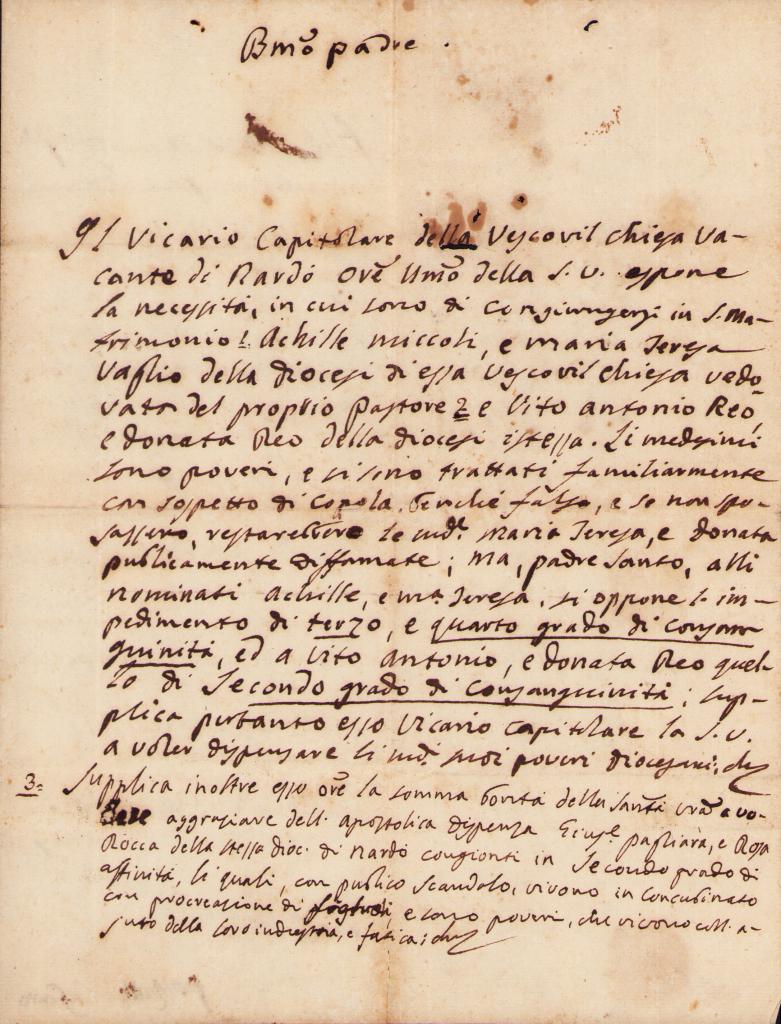 Bmõ padre.
Il Vicario Capitolare della Vescovil chiesa va-
cante di Nardò Orẽ Umõ della S. V. espone
la necessità, in cui sono di congiungersi in S. Ma-
trimonio 1. Achille Miccoli, e Maria Teresa
Vaglio della Diocesi di essa Vescovil chiesa vedo-
vata del proprio Pastore 2 e Vito Antonio Reo,
e Donata Reo della Diocesi istessa. Li medesimi
sono poveri, e si sono trattati familiarmente
con sospetto di copola, benché falso, e se non spo-
sassero, restarebbero le sud.e Maria Teresa, e Donata
publicamente diffamate; ma, padre santo, alli
nominati Achille, e Ma. Teresa, si oppone l'im-
pedimento di terzo, e quarto grado di consan-
guinità, ed a Vito Antonio, e Donata Reo quel-
lo di Secondo grado di consanguinità; sup-
plica pertanto esso Vicario Capitolare la S. V.
a voler dispensare li sud.i suoi poveri diocesani;
3= Supplica inoltre esso Orẽ la somma bontà della Santà vrã a vo-
lere aggraziare dell'apostolica dispenza Gius.e Pagliara, e Rosa
Rocca della stessa dioc. di Nardò congionti in Secondo grado di
affinità, li quali, con publico scandolo, vivono in concubinato
con procreazione di figliuoli, e sono poveri, che vivono coll'a-
juto della loro industria, e fatica;